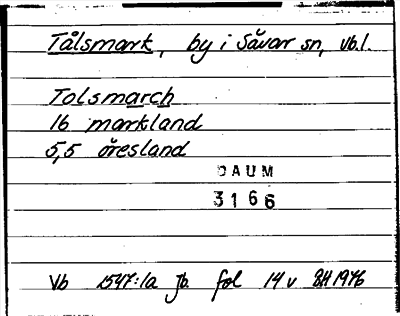 Tålsmark, by i Sävar sn, Vb.l.
Tolsmarch
16 markland
5,5 öresland
DAUM
3166
Vb 1547:1a Jb. fol 14 v BH 1976